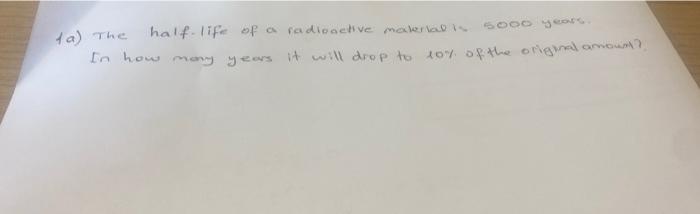 1a) The half-life of a radioactive material is 5000 years.
In how many years it will drop to 10% of the original amount?